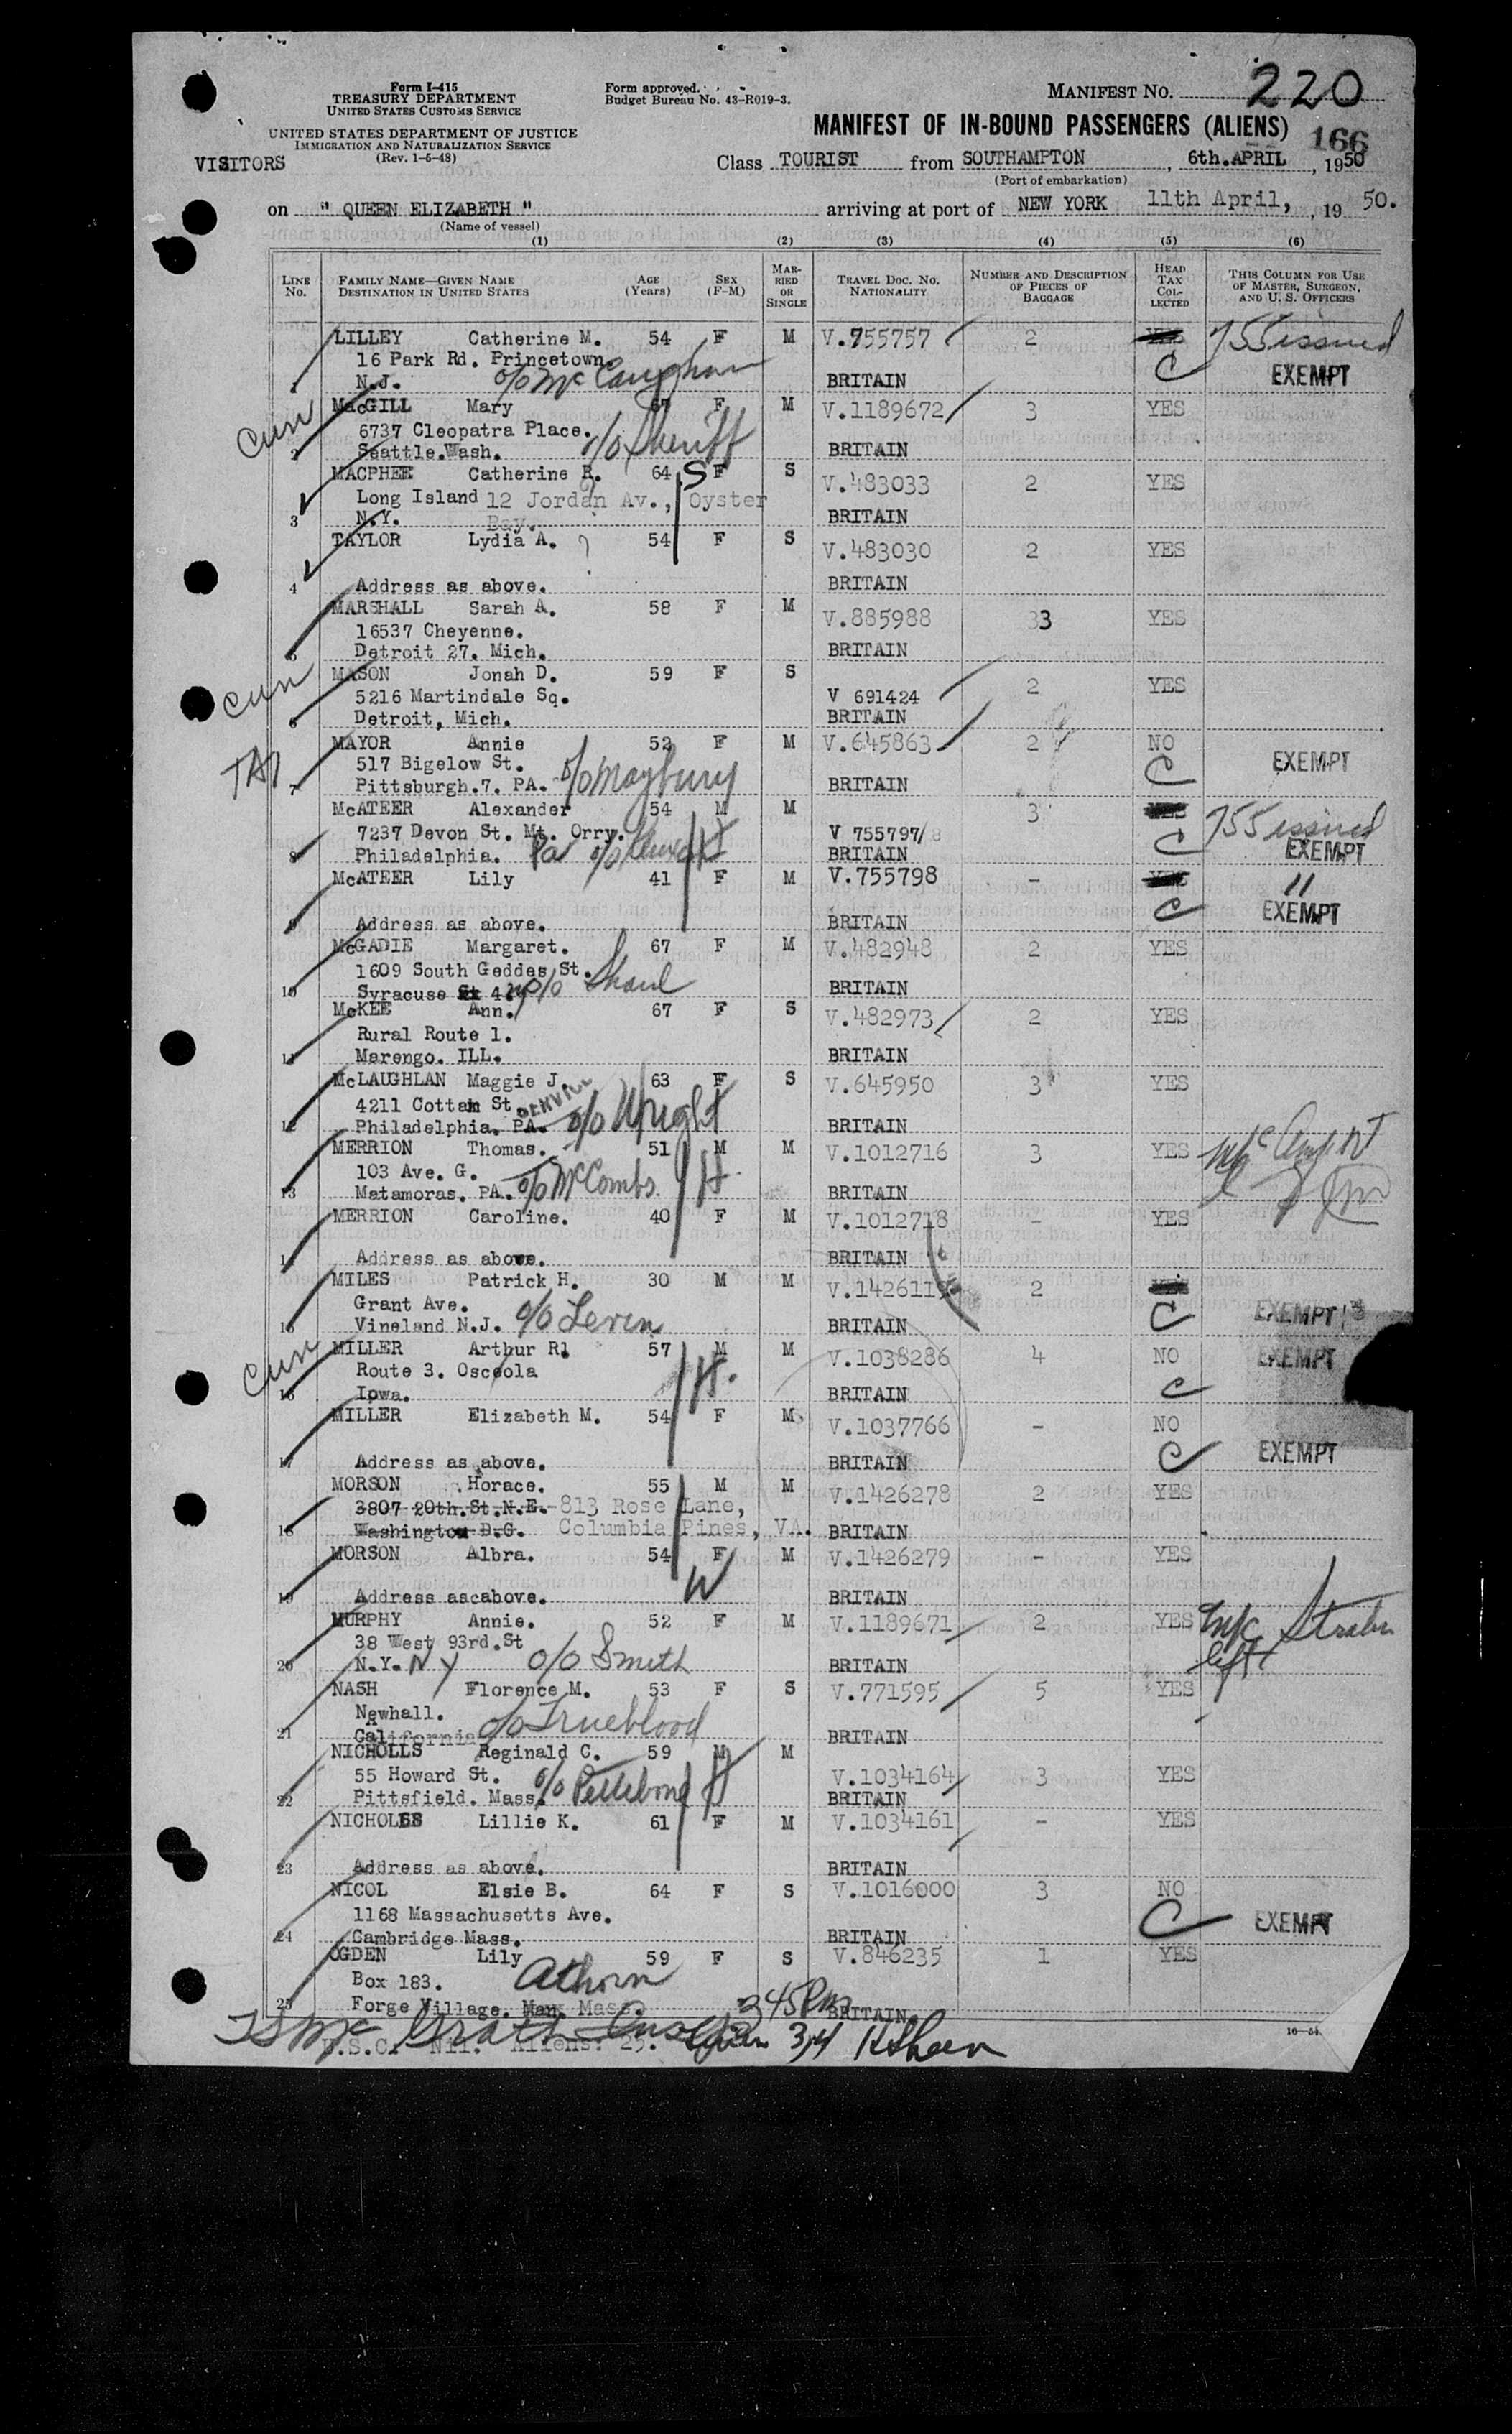 Form I-415
TREASURY DEPARTMENT
UNITED STATES CUSTOMS SERVICE
UNITED STATES DEPARTMENT OF JUSTICE
IMMIGRATION AND NATURALIZATION SERVICE
(Rev. 1-6-48)
VISITORS
Form approved.
Budget Bureau No. 43-R019-3.
MANIFEST NO. 220
MANIFEST OF IN-BOUND PASSENGERS (ALIENS) 166
Class TOURIST from SOUTHAMPTON, 6th.APRIL, 1950
(Port of embarkation)
on " QUEEN ELIZABETH " arriving at port of NEW YORK 11th April, 19 50.
(Name of vessel)
(1) (2) (3) (4) (5) (6)
LINE NO. FAMILY NAME—GIVEN NAME DESTINATION IN UNITED STATES AGE (YEARS) SEX (F-M) MARRIED OR SINGLE TRAVEL DOC. NO. NATIONALITY NUMBER AND DESCRIPTION OF PIECES OF BAGGAGE HEAD TAX COLLECTED THIS COLUMN FOR USE OF MASTER, SURGEON, AND U. S. OFFICERS
LILLEY Catherine M. 54 F M V.755757 2 755 issued
16 Park Rd. Princetown.
1 N.J. c/o McCaughan BRITAIN C EXEMPT
MacGILL Mary 57 F M V.1189672 3 YES
6737 Cleopatra Place.
2 Seattle.Wash. c/o Sheriff BRITAIN
MACPHEE Catherine R. 64 S F S V.483033 2 YES
Long Island 12 Jordan Av., Oyster
3 N.Y. Bay. BRITAIN
TAYLOR Lydia A. 54 F S V.483030 2 YES
4 Address as above. BRITAIN
MARSHALL Sarah A. 58 F M V.885988 33 YES
16537 Cheyenne.
5 Detroit 27. Mich. BRITAIN
MASON Jonah D. 59 F S V 691424 2 YES
5216 Martindale Sq.
6 Detroit, Mich. BRITAIN
MAYOR Annie 52 F M V.645863 2 NO
517 Bigelow St. EXEMPT
7 Pittsburgh.7. PA. c/o Maybury BRITAIN C
McATEER Alexander 54 M M 3 755 issued
7237 Devon St. Mt. Orry. V 755797
8 Philadelphia. Pa c/o BRITAIN C EXEMPT
McATEER Lily 41 F M V.755798 - "
9 Address as above. BRITAIN C EXEMPT
McGADIE Margaret. 67 F M V.482948 2 YES
1609 South Geddes St.
10 Syracuse 4. c/o Shaul BRITAIN
McKEE Ann. 67 F S V.482973 2 YES
Rural Route 1.
11 Marengo. ILL. BRITAIN
McLAUGHLAN Maggie J. 63 F S V.645950 3 YES
4211 Cottam St
12 Philadelphia. PA. c/o Wright BRITAIN
MERRION Thomas. 51 M M V.1012716 3 YES
103 Ave. G.
13 Matamoras. PA. c/o McCombs H BRITAIN
MERRION Caroline. 40 F M V.1012718 - YES
14 Address as above. BRITAIN
MILES Patrick H. 30 M M V.1426119 2
Grant Ave.
15 Vineland N.J. c/o Leven BRITAIN C EXEMPT
MILLER Arthur R. 57 M M V.1038286 4 NO EXEMPT
Route 3. Osceola H.
16 Iowa. BRITAIN C
MILLER Elizabeth M. 54 F M V.1037766 - NO
17 Address as above. BRITAIN C EXEMPT
MORSON Horace. 55 M M V.1426278 2 YES
3807 20th.St.N.E. 813 Rose Lane,
18 Washington D.C. Columbia Pines, VA. BRITAIN
MORSON Albra. 54 F M V.1426279 - YES
19 Address ascabove. W BRITAIN
MURPHY Annie. 52 F M V.1189671 2 YES
38 West 93rd.St
20 N.Y. N Y c/o Smith BRITAIN
NASH Florence M. 53 F S V.771595 5 YES
Newhall.
21 California c/o Trueblood BRITAIN
NICHOLLS Reginald C. 59 M M V.1034164 3 YES
55 Howard St. H
22 Pittsfield. Mass. c/o BRITAIN
NICHOLLS Lillie K. 61 F M V.1034161 - YES
23 Address as above. BRITAIN
NICOL Elsie B. 64 F S V.1016000 3 NO
1168 Massachusetts Ave. C EXEMPT
24 Cambridge Mass. BRITAIN
OGDEN Lily 59 F S V.846235 1 YES
Box 183. Athorn
25 Forge Village. Mass. BRITAIN
345 Pm
U.S.C. Nil. Aliens. 25.
16-54